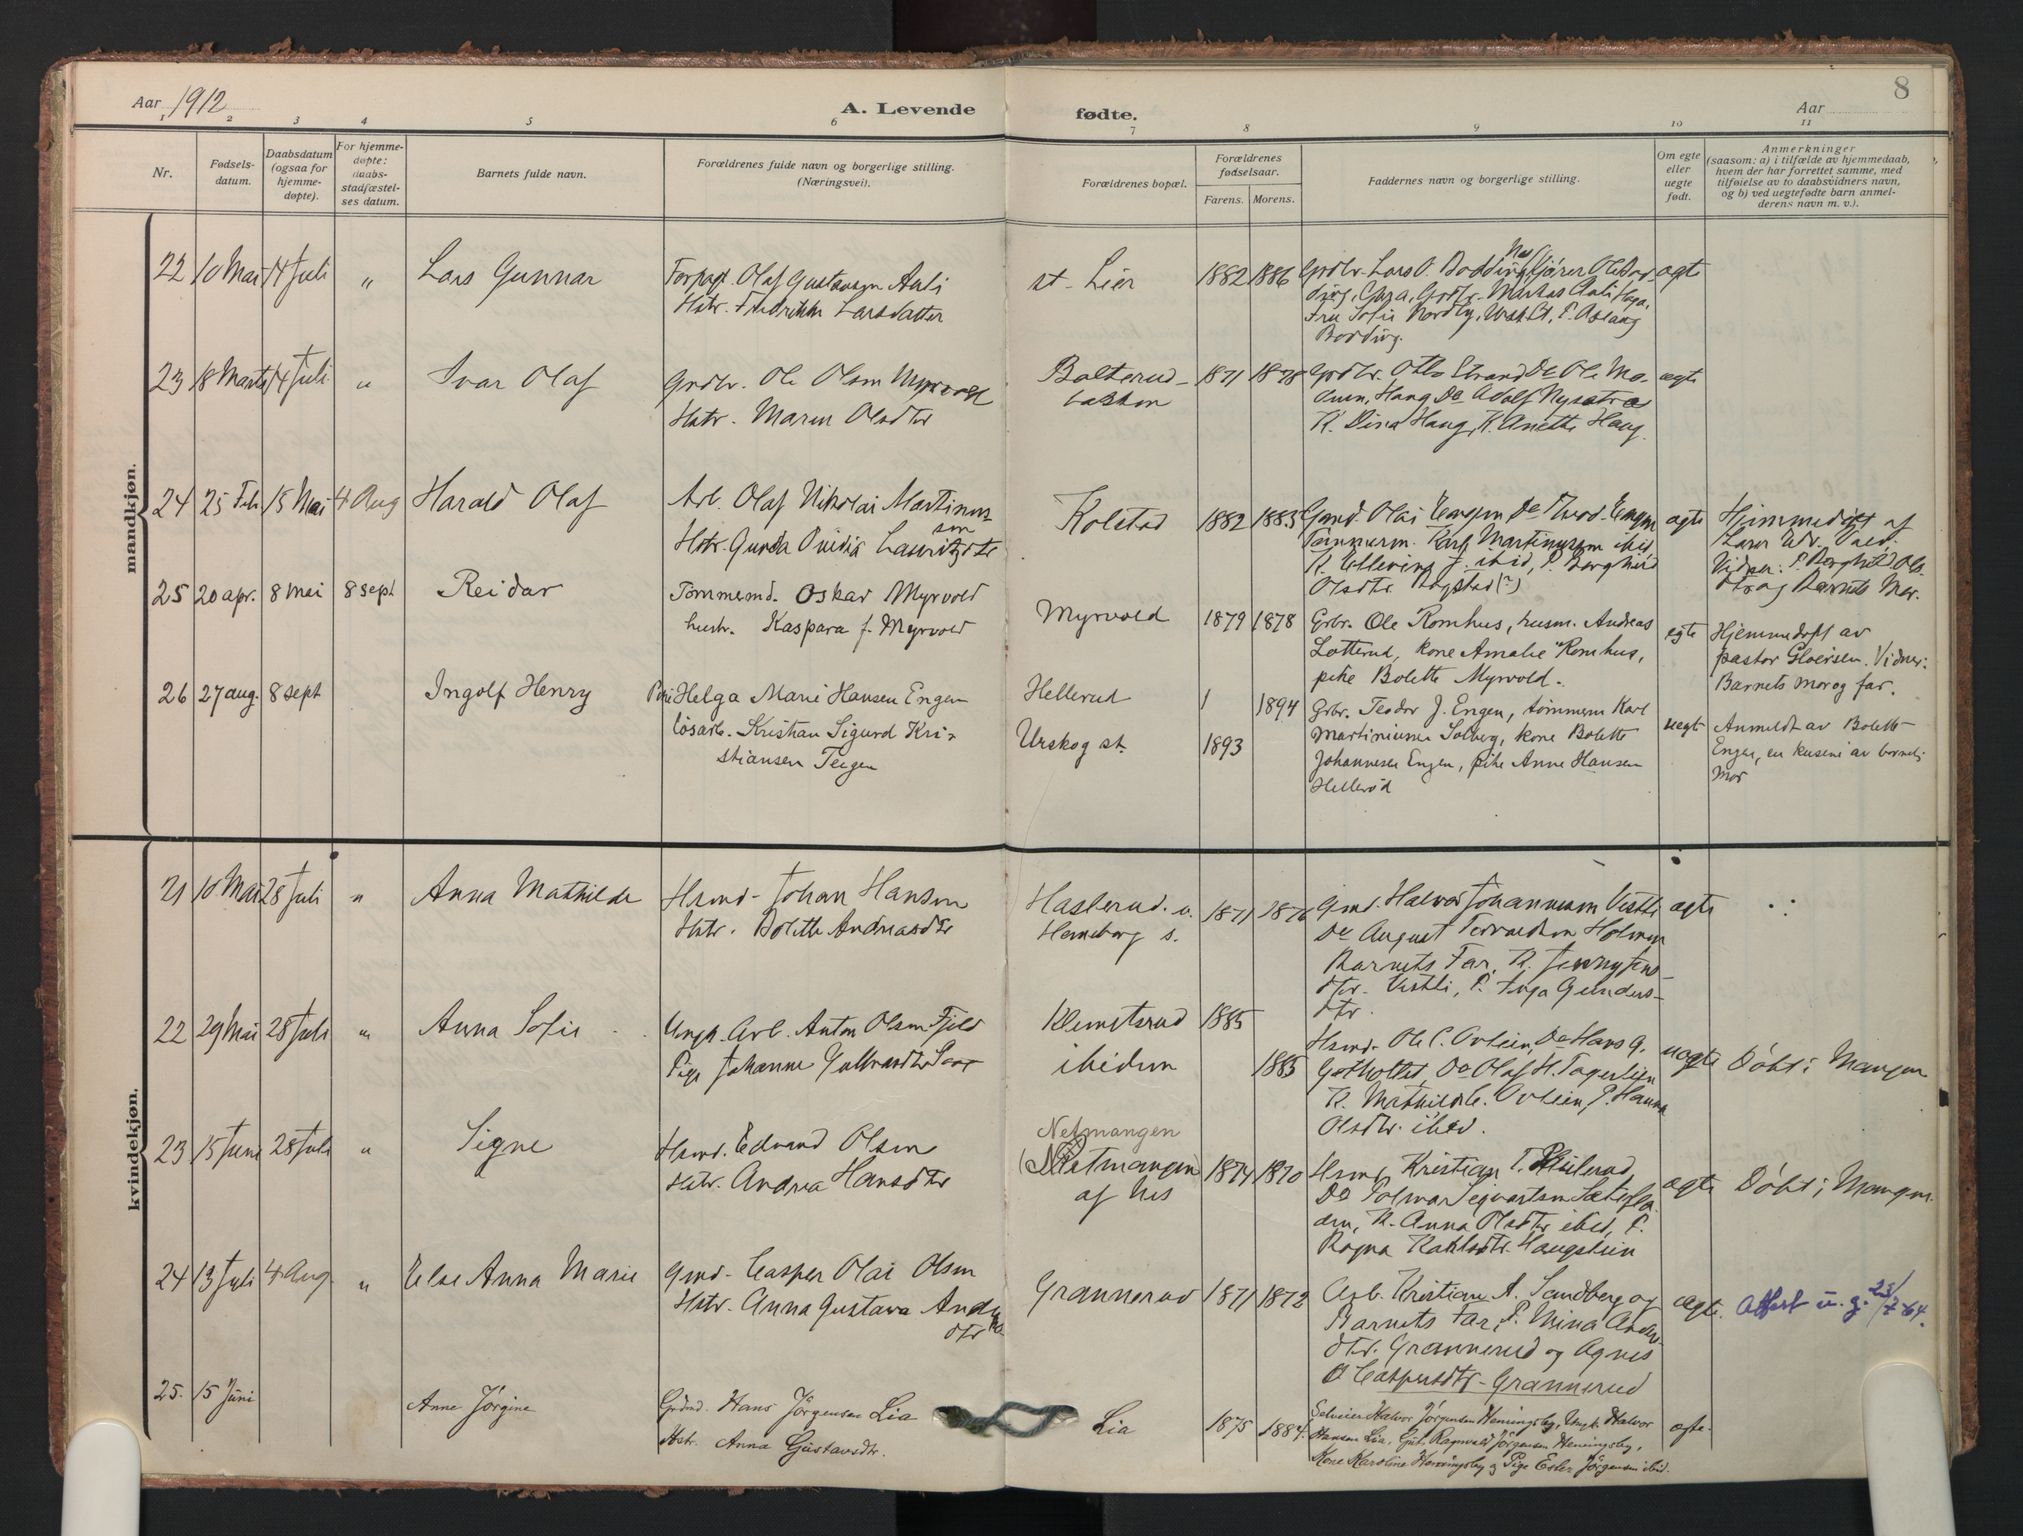 8
Aar 1912
A. Levende fødte.
Aar
1 2 3 4 5 6 7 8 9 10 11
Nr.
Fødsels-
datum.
Daabsdatum
(ogsaa for
hjemme-
døpte).
For hjemme-
døpte:
daabs-
stadfæstel-
ses datum.
Barnets fulde navn.
Forældrenes fulde navn og borgerlige stilling.
(Næringsvei).
Forældrenes bopæl.
Forældrenes
fødselsaar.
Farens. Morens.
Faddernes navn og borgerlige stilling.
Om egte
eller
uegte
født.
Anmerkninger
(saasom: a) i tilfælde av hjemmedaab,
hvem der har forrettet samme, med
tilføielse av to daabsvidners navn,
og b) ved uegtefødte barn anmel-
derens navn m. v.).
mandkjøn.
22 10 Mai 14 Juli " Lars Gunnar
Forpagt. Olaf Gustavsen Auli
Hstr. Fredrikke Larsdatter
st. Lier
1882 1886
Grdbr. Lars O. Bødding
Fru Sofie Nordby, Aslaug
Bødding.
ægte
23 18 Marts 14 Juli " Ivar Olaf
Grdbr. Ole Olsen Myrvold
Hstr. Maren Olsdtr
Bolterud-
bakken
1871 1878
Grdbr. Otto Strand Do Ole Mo-
Haug Do Adolf
K. Dina Haug, K. Anette Haug.
ægte
24 25 Feb 15 Mai 4 Aug Harald Olaf
Arb. Olaf Nikolai Martinus-
sen
Hstr. Gunda Lauritzdtr
Kolstad
1882 1883
Gmd. Olai Engen Do Theod. Engen
Tømmerm. Karl Martinusen ibid,
K. Ellevine J. ibid, P. Borghild
Olsdtr. Bogstad (?)
ægte
Hjemmedøbt af
Lærer
Vidner: P. Borghild Ols-
dtr og Barnets Mor.
25 20 apr. 8 mai 8 sept Reidar
Tømmermd. Oskar Myrvold
hustr. Kaspara f. Myrvold
Myrvold
1879 1878
Grbr. Ole Romhus, husm. Andreas
Lotterud, kone Amalie Romhus,
pike Bolette Myrvold.
egte
Hjemmedøpt av
pastor Gloersen. Vidner:
Barnets mor og far.
26 27 aug. 8 sept Ingolf Henry
Pike Helga Marie Hansen Engen
løsarb. Kristian Sigurd Kri-
stiansen Teigen
Hellerud
Urskog st.
1 1894
1893
Grbr. Teodor J. Engen, tømmerm Karl
Martiniusen Solberg, kone Bolette
Johannesen Engen, pike Anne Hansen
Hellerød
uegte
Anmeldt av Bolette
Engen, en kusine av barnets
mor
kvindekjøn.
21 10 Mai 28 Juli " Anna Mathilde
Hsmd. Johan Hansen
Hstr. Bolette Andreasdtr
Hasterud. u.
Henneborg s.
1871 1876
Gmd. Halvor Johannesen Vestli
Do August Torvaldsen Holmen
Barnets Far, K. Jenny Jens-
dtr. Vestli, P. Inga Gunders-
dtr.
ægte
22 29 Mai 28 Juli " Anna Sofie
Ungk. Arb. Anton Olsen Fjeld
Pige Johanne
Klemetsrud
ibidem
1885
1885
Hsmd. Ole C. Ovlien, Do Hans G.
Do Olaf H. Tagerlien
K. Mathilde C. Ovlien, P. Hanna
Olsdtr. ibid.
uægte
Døbt i Mangen
23 15 Juni 28 Juli " Signe
Hsmd. Edvard Olsen
Hstr. Andrea Hansdtr
Netmangen
(Netmangen
af Nes
1874 1870
Hsmd. Kristian T.
Do Solmar Sigvartsen
K. Anna Olsdtr ibid, P.
Ragna Karlsdtr. Haugstein
ægte
Døbt i Mangen.
24 13 Juli 4 Aug. " Else Anna Marie
Gmd. Casper Olai Olsen
Hstr. Anna Gustava Anders-
dtr
Grannerud
1871 1872
Arb. Kristian A. Sandberg og
Barnets Far, P. Mina Anders-
dtr. Grannerud og Agnes
O Caspersdtr. Grannerud
ægte.
Attest u. g. 23/7-64.
25. 15 Juni Anne Jörgine
Grdmd. Hans Jörgensen Lia
Hstr. Anna Gustavsdtr.
Lia
1875 1884.
Selveier Halvor Jörgensen Henningsby, Ungk. Halvor
Hansen Lia, Gut. Ragnvald Jörgensen Henningsby,
Kone Karoline Henningsby og Pige Ester Jörgensen ibid.
ægte.